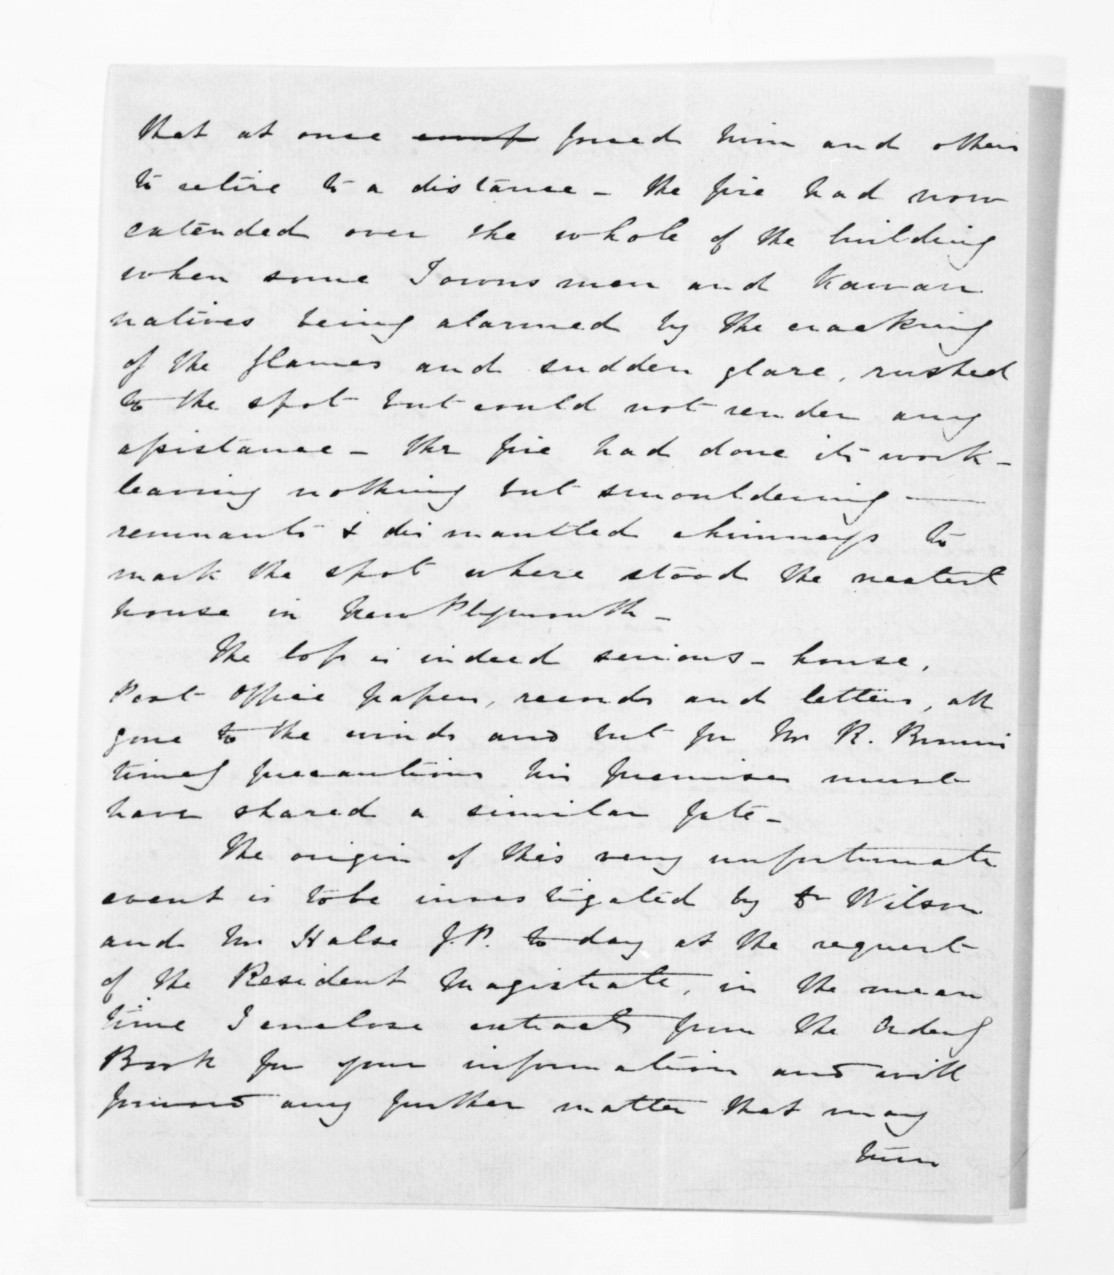 that at once forced him and others
to retire to a distance – the fire had now
extended over the whole of the building
when some Townsmen and Kawau
natives being alarmed by the cracking
of the flames and sudden glare, rushed
to the spot but could not render any
assistance – the fire had done its work –
leaving nothing but smouldering —
remnants & dismantled chimneys to
mark the spot where stood the neatest
house in New Plymouth –
The loss is indeed serious – house,
Post Office papers, records and letters, all
gone to the winds and but for Mr R. Browns
timely precautions his premises must
have shared a similar fate –
The origin of this very unfortunate
event is to be investigated by Dr Wilson
and Mr Halse J.P. to day at the request
of the Resident Magistrate, in the mean
time I enclose extracts from the Orderly
Book for your information and will
forward any further matter that may
turn